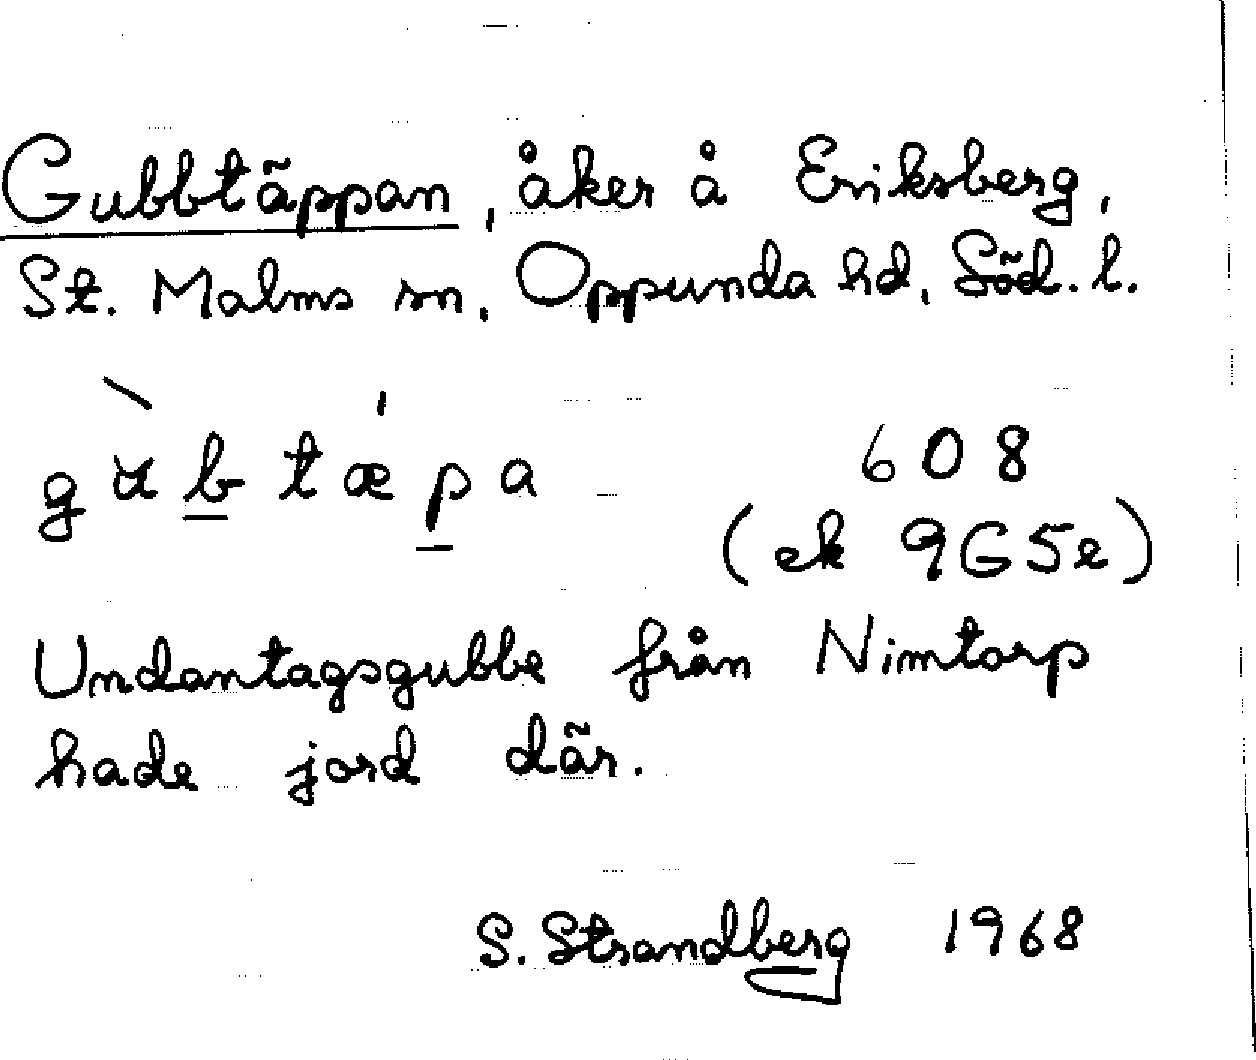 Gubbtäppan, åker å Eriksberg,
St. Malms sn, Oppunda hd, Söd. l.
gu̇̀b̲tæ̍p̲a 608
(ek 9G5e)
Undantagsgubbe från Nimtorp
hade jord där.
S. Strandberg 1968